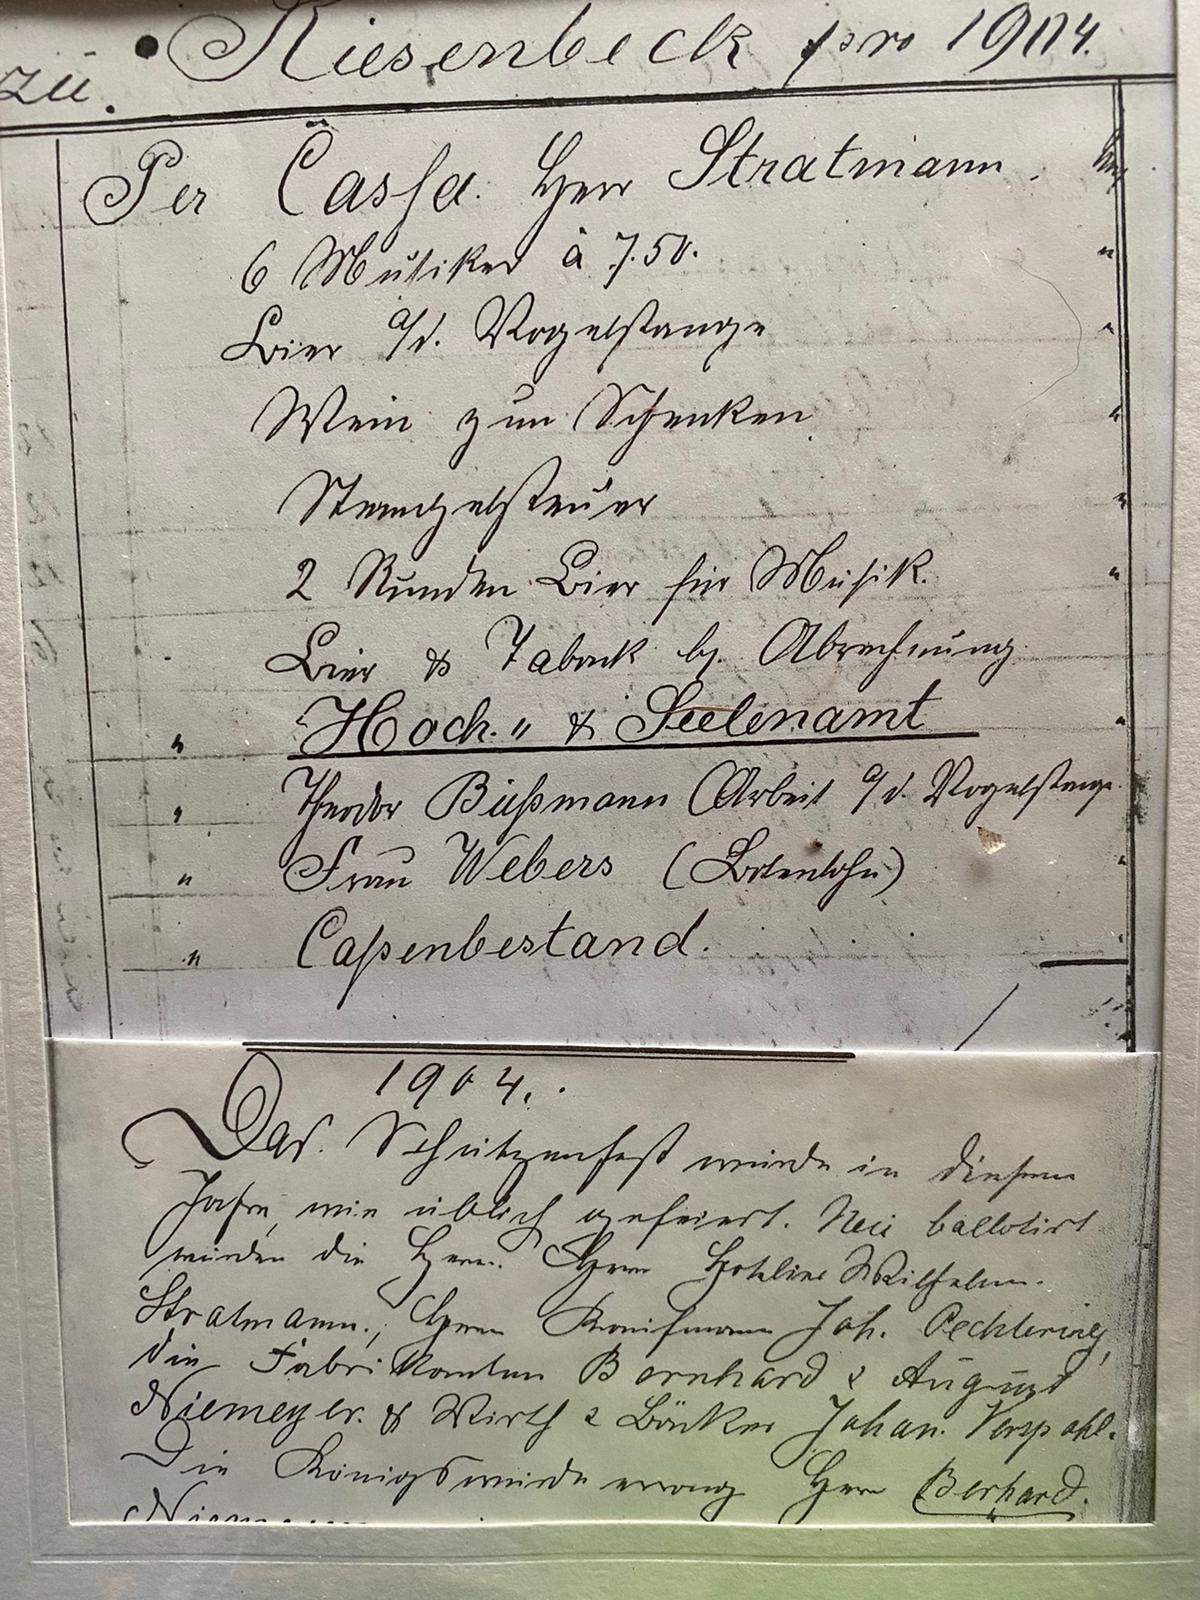 zu Riesenbeck pro 1904.
Per Cassa. Herr Stratmann.
6 Musiker à 7.50.
Bier a/d. Vogelstange
Wein zum Schenken
Stempelsteuer
2 Runden Bier für Musik.
Bier & Taback b. Abrechnung
" Hoch- " & Seelenamt "
" Theodor Bußmann (Arbeit a/d. Vogelstange
" Frau Webers (Botenlohn) "
" Caßenbestand.
1904.
Das Schützenfest wurde in diesem
Jahre, wie üblich gefeiert. Neu ballotirt
wurden die Herrn. Herrn Hotelier Wilhelm.
Stratmann., Herrn Kaufmann Joh. Pechtering,
die Fabrikanten Bernhard & August
Niemeyer. & Wirth & Bäcker Johan. Verspohl.
Die Königswürde errang Herr Berhard.